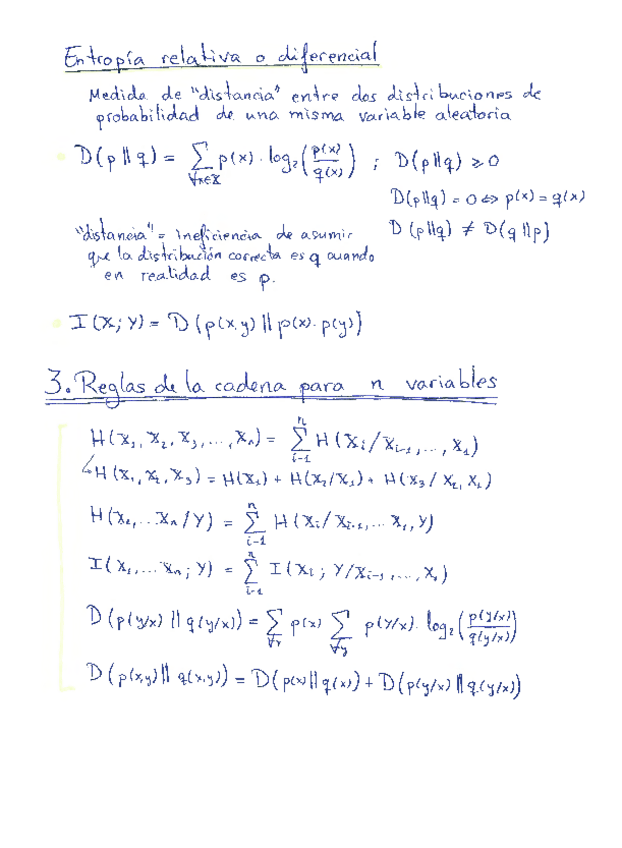 Entropía relativa o diferencial
Medida de "distancia" entre dos distribuciones de
probabilidad de una misma variable aleatoria
D(p||q) = ∑_{∀x∈X} p(x) · log₂(p(x)/q(x)) ; D(p||q) ≥ 0
D(p||q) = 0 ⇔ p(x) = q(x)
D(p||q) ≠ D(q||p)
"distancia" = ineficiencia de asumir
que la distribución correcta es q cuando
en realidad es p.
I(X;Y) = D(p(x,y) || p(x)·p(y))
3. Reglas de la cadena para n variables
H(X₁, X₂, X₃, ..., Xₙ) = ∑_{i=1}^{n} H(Xᵢ/Xᵢ₋₁, ..., X₁)
↳ H(X₁, X₂, X₃) = H(X₁) + H(X₂/X₁) + H(X₃/X₂, X₁)
H(X₁, ... Xₙ/Y) = ∑_{i=1}^{n} H(Xᵢ/Xᵢ₋₁, ... X₁, Y)
I(X₁, ... Xₙ; Y) = ∑_{i=1}^{n} I(Xᵢ; Y/Xᵢ₋₁, ..., X₁)
D(p(y/x) || q(y/x)) = ∑_{∀x} p(x) ∑_{∀y} p(y/x) · log₂(p(y/x)/q(y/x))
D(p(x,y) || q(x,y)) = D(p(x) || q(x)) + D(p(y/x) || q(y/x))